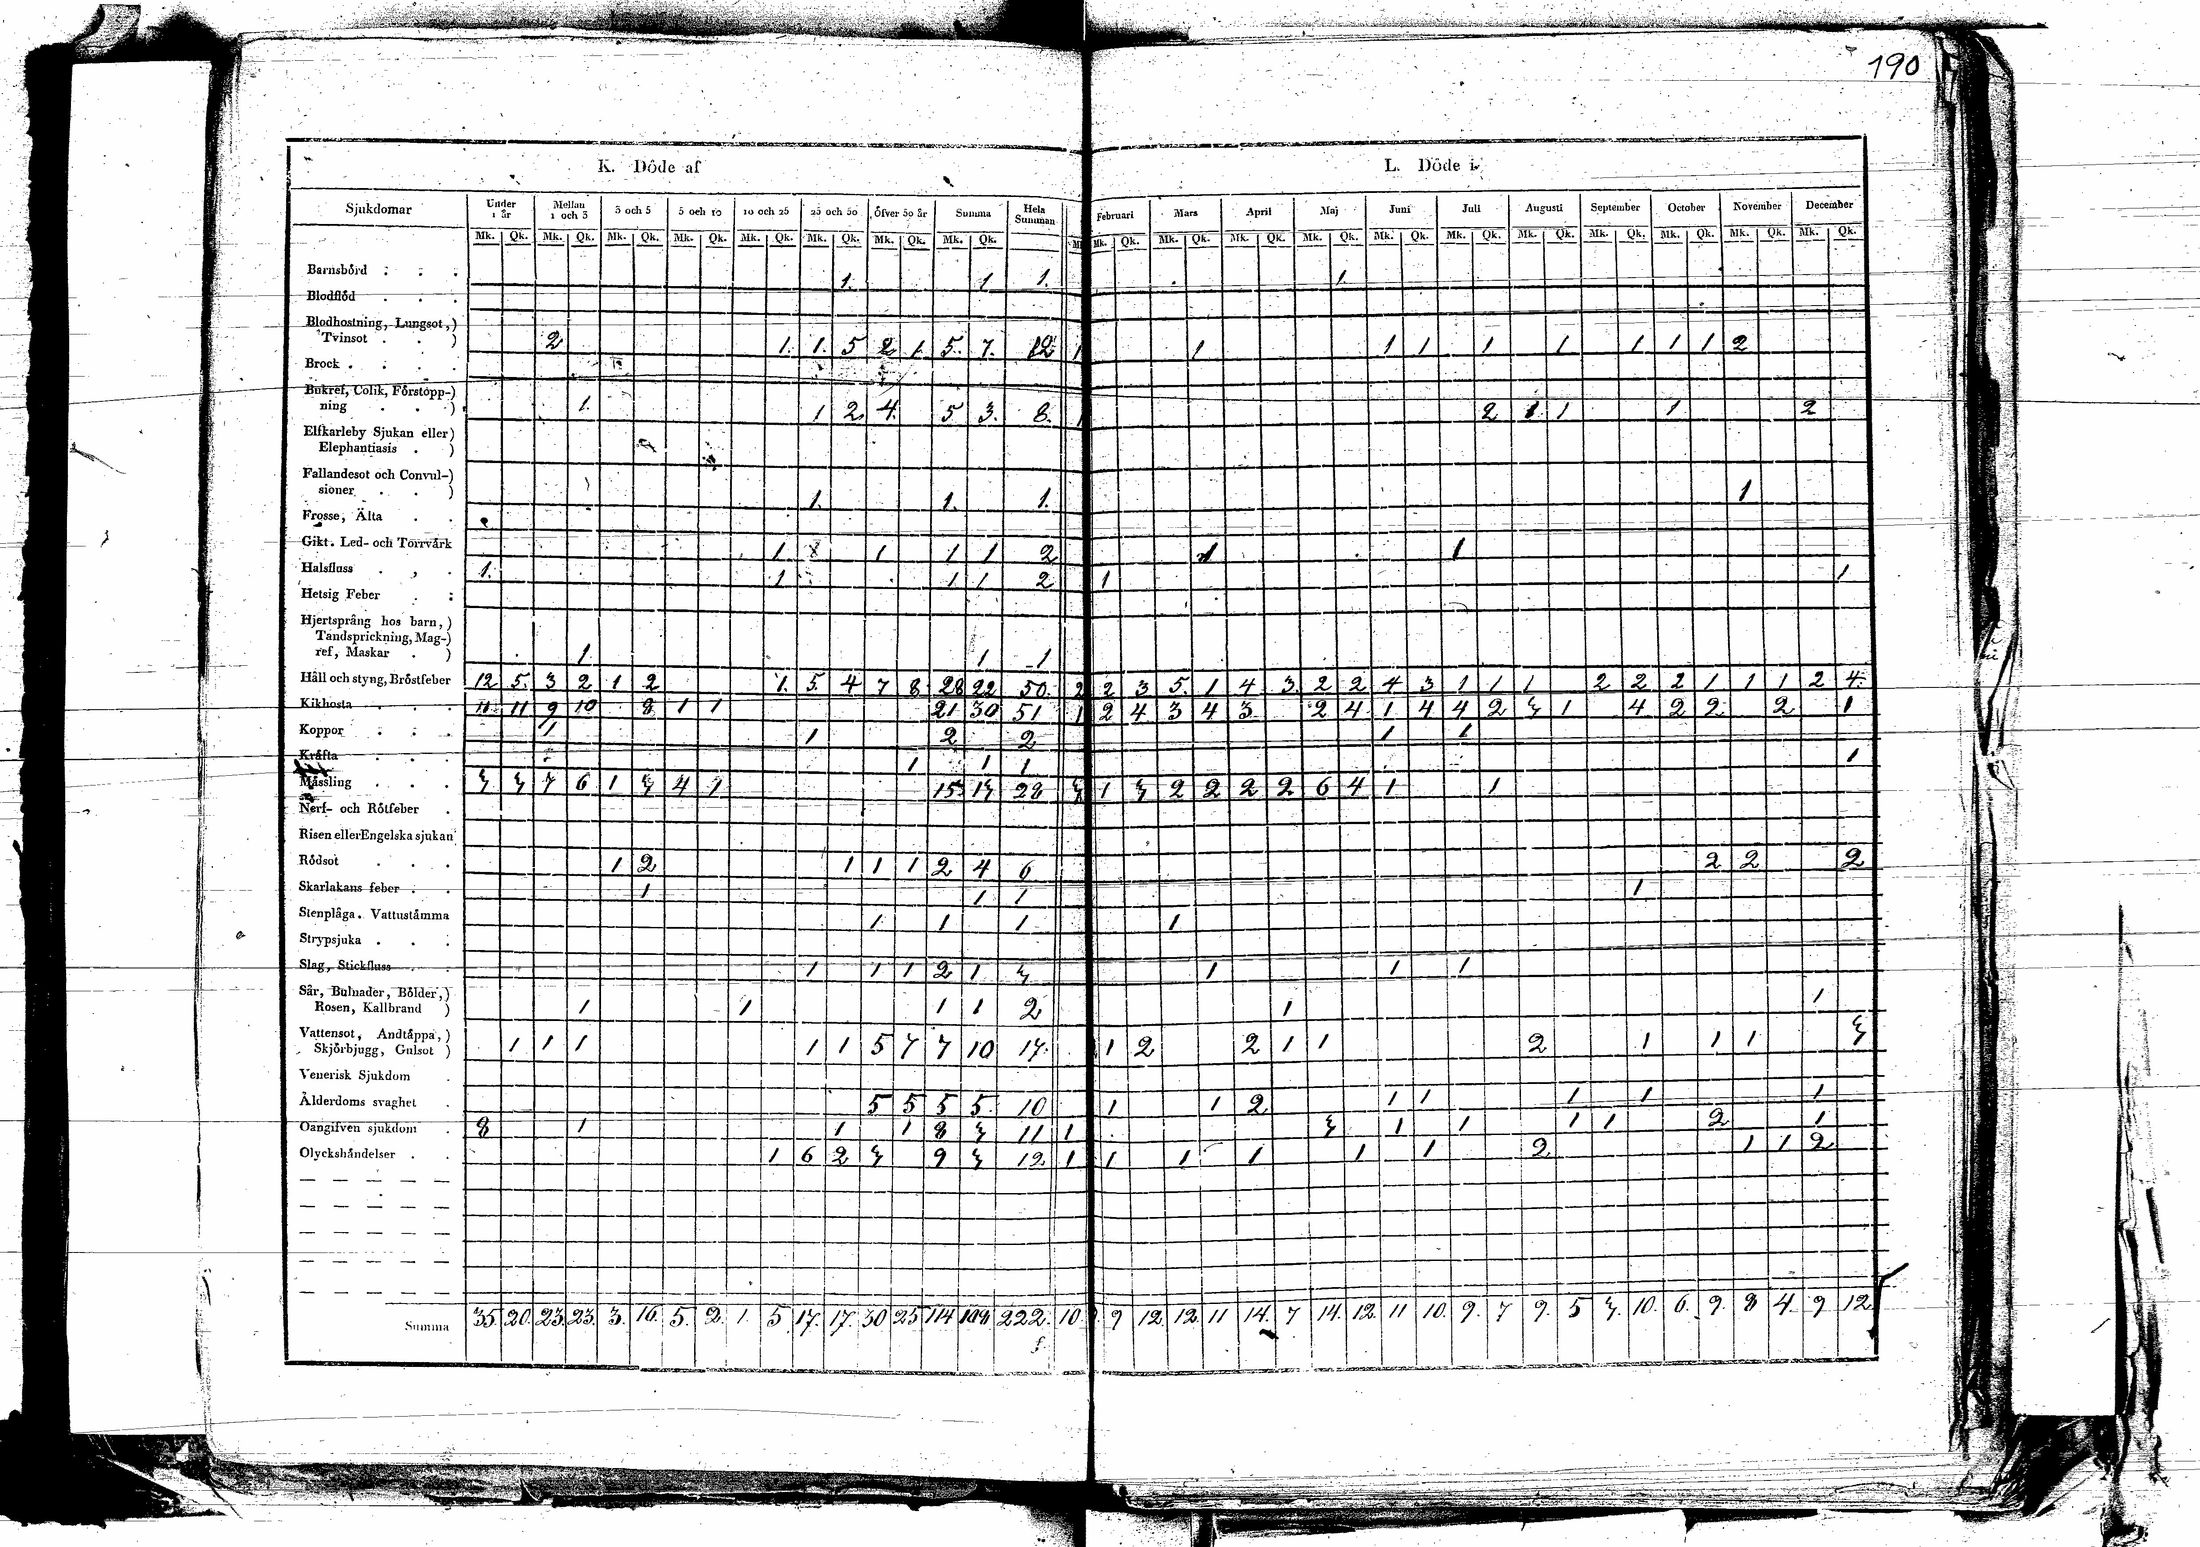 190
K. Döde af
L. Döde i
Sjukdomar Under 1 år Mellan 1 och 3 3 och 5 5 och 10 10 och 25 25 och 50 Öfver 50 år Summa Hela Summan Februari Mars April Maj Juni Juli Augusti September October November December
Mk. Qk. Mk. Qk. Mk. Qk. Mk. Qk. Mk. Qk. Mk. Qk. Mk. Qk. Mk. Qk. Mk. Qk. Mk. Qk. Mk. Qk. Mk. Qk. Mk. Qk. Mk. Qk. Mk. Qk. Mk. Qk. Mk. Qk. Mk. Qk. Mk. Qk.
Barnsbörd . . . 1. 1 1. 1.
Blodflöd . . .
Blodhostning, Lungsot,)
Tvinsot . . ) 2 1. 1. 5 2 1. 5. 7. 12 1 1 1 1 1 1 1 1 1 2
Brock . . . .
Bukref, Colik, Förstopp-)
ning . . ) 1. 1 2 4. 5 3. 8. 1 2 1 1 1 2
Elfkarleby Sjukan eller)
Elephantiasis . )
Fallandesot och Convul-)
sioner . . ) 1. 1. 1. 1
Frosse, Älta . .
Gikt. Led- och Torrvärk 1 1 1 1 2 1 1
Halsfluss . . . 1. 1 1 1 2 1 1
Hetsig Feber . .
Hjertsprång hos barn, )
Tandsprickning, Mag-)
ref, Maskar . ) 1 1 1
Håll och styng, Bröstfeber 12 5. 3 2 1 2 1. 5. 4 7 8 28 22 50. 2 2 3 5. 1 4 3. 2 2 4 3 1 1 1 2 2 2 1 1 1 2 4.
Kikhosta . . . 11. 11 9 10 8 1 1 21 30 51 1 2 4 3 4 3 2 4 1 4 4 2 3 1 4 2 2 2 1
Koppor . . . 1 1 2 2 1 1
Kräfta . . . 1 1 1 1
Mässling . . . 3 3 7 6 1 3 4 1 15 13 28 3 1 3 2 2 2 2 6 4 1 1
Nerf- och Rötfeber .
Risen eller Engelska sjukan
Rödsot . . . 1 2 1 1 1 2 4 6 2 2 2
Skarlakans feber . . 1 1 1 1
Stenplåga. Vattustämma 1 1 1 1
Strypsjuka . . .
Slag, Stickfluss . . 1 1 1 2 1 3 1 1 1
Sår, Bulnader, Bölder,)
Rosen, Kallbrand ) 1 1 1 1 2 1 1
Vattensot, Andtäppa,)
Skjörbjugg, Gulsot ) 1 1 1 1 1 5 7 7 10 17. 1 2 2 1 1 2 1 1 1 3
Venerisk Sjukdom .
Ålderdoms svaghet . 5 5 5 5. 10 1 1 2 1 1 1 1 1
Oangifven sjukdom . 8 1 1 1 8 3 11 1 3 1 1 1 1 2 1
Olyckshändelser . . 1 6 2 3 9 3 12 1 1 1 1 1 1 2 1 1 2
Summa 35. 20. 23. 23. 3. 16. 5. 2. 1. 5 17. 17. 30 25 114 108 222. 10. 9 12 12. 11 14. 7 14. 12. 11 10. 9. 7 9. 5 3. 10. 6. 9. 8 4. 9 12